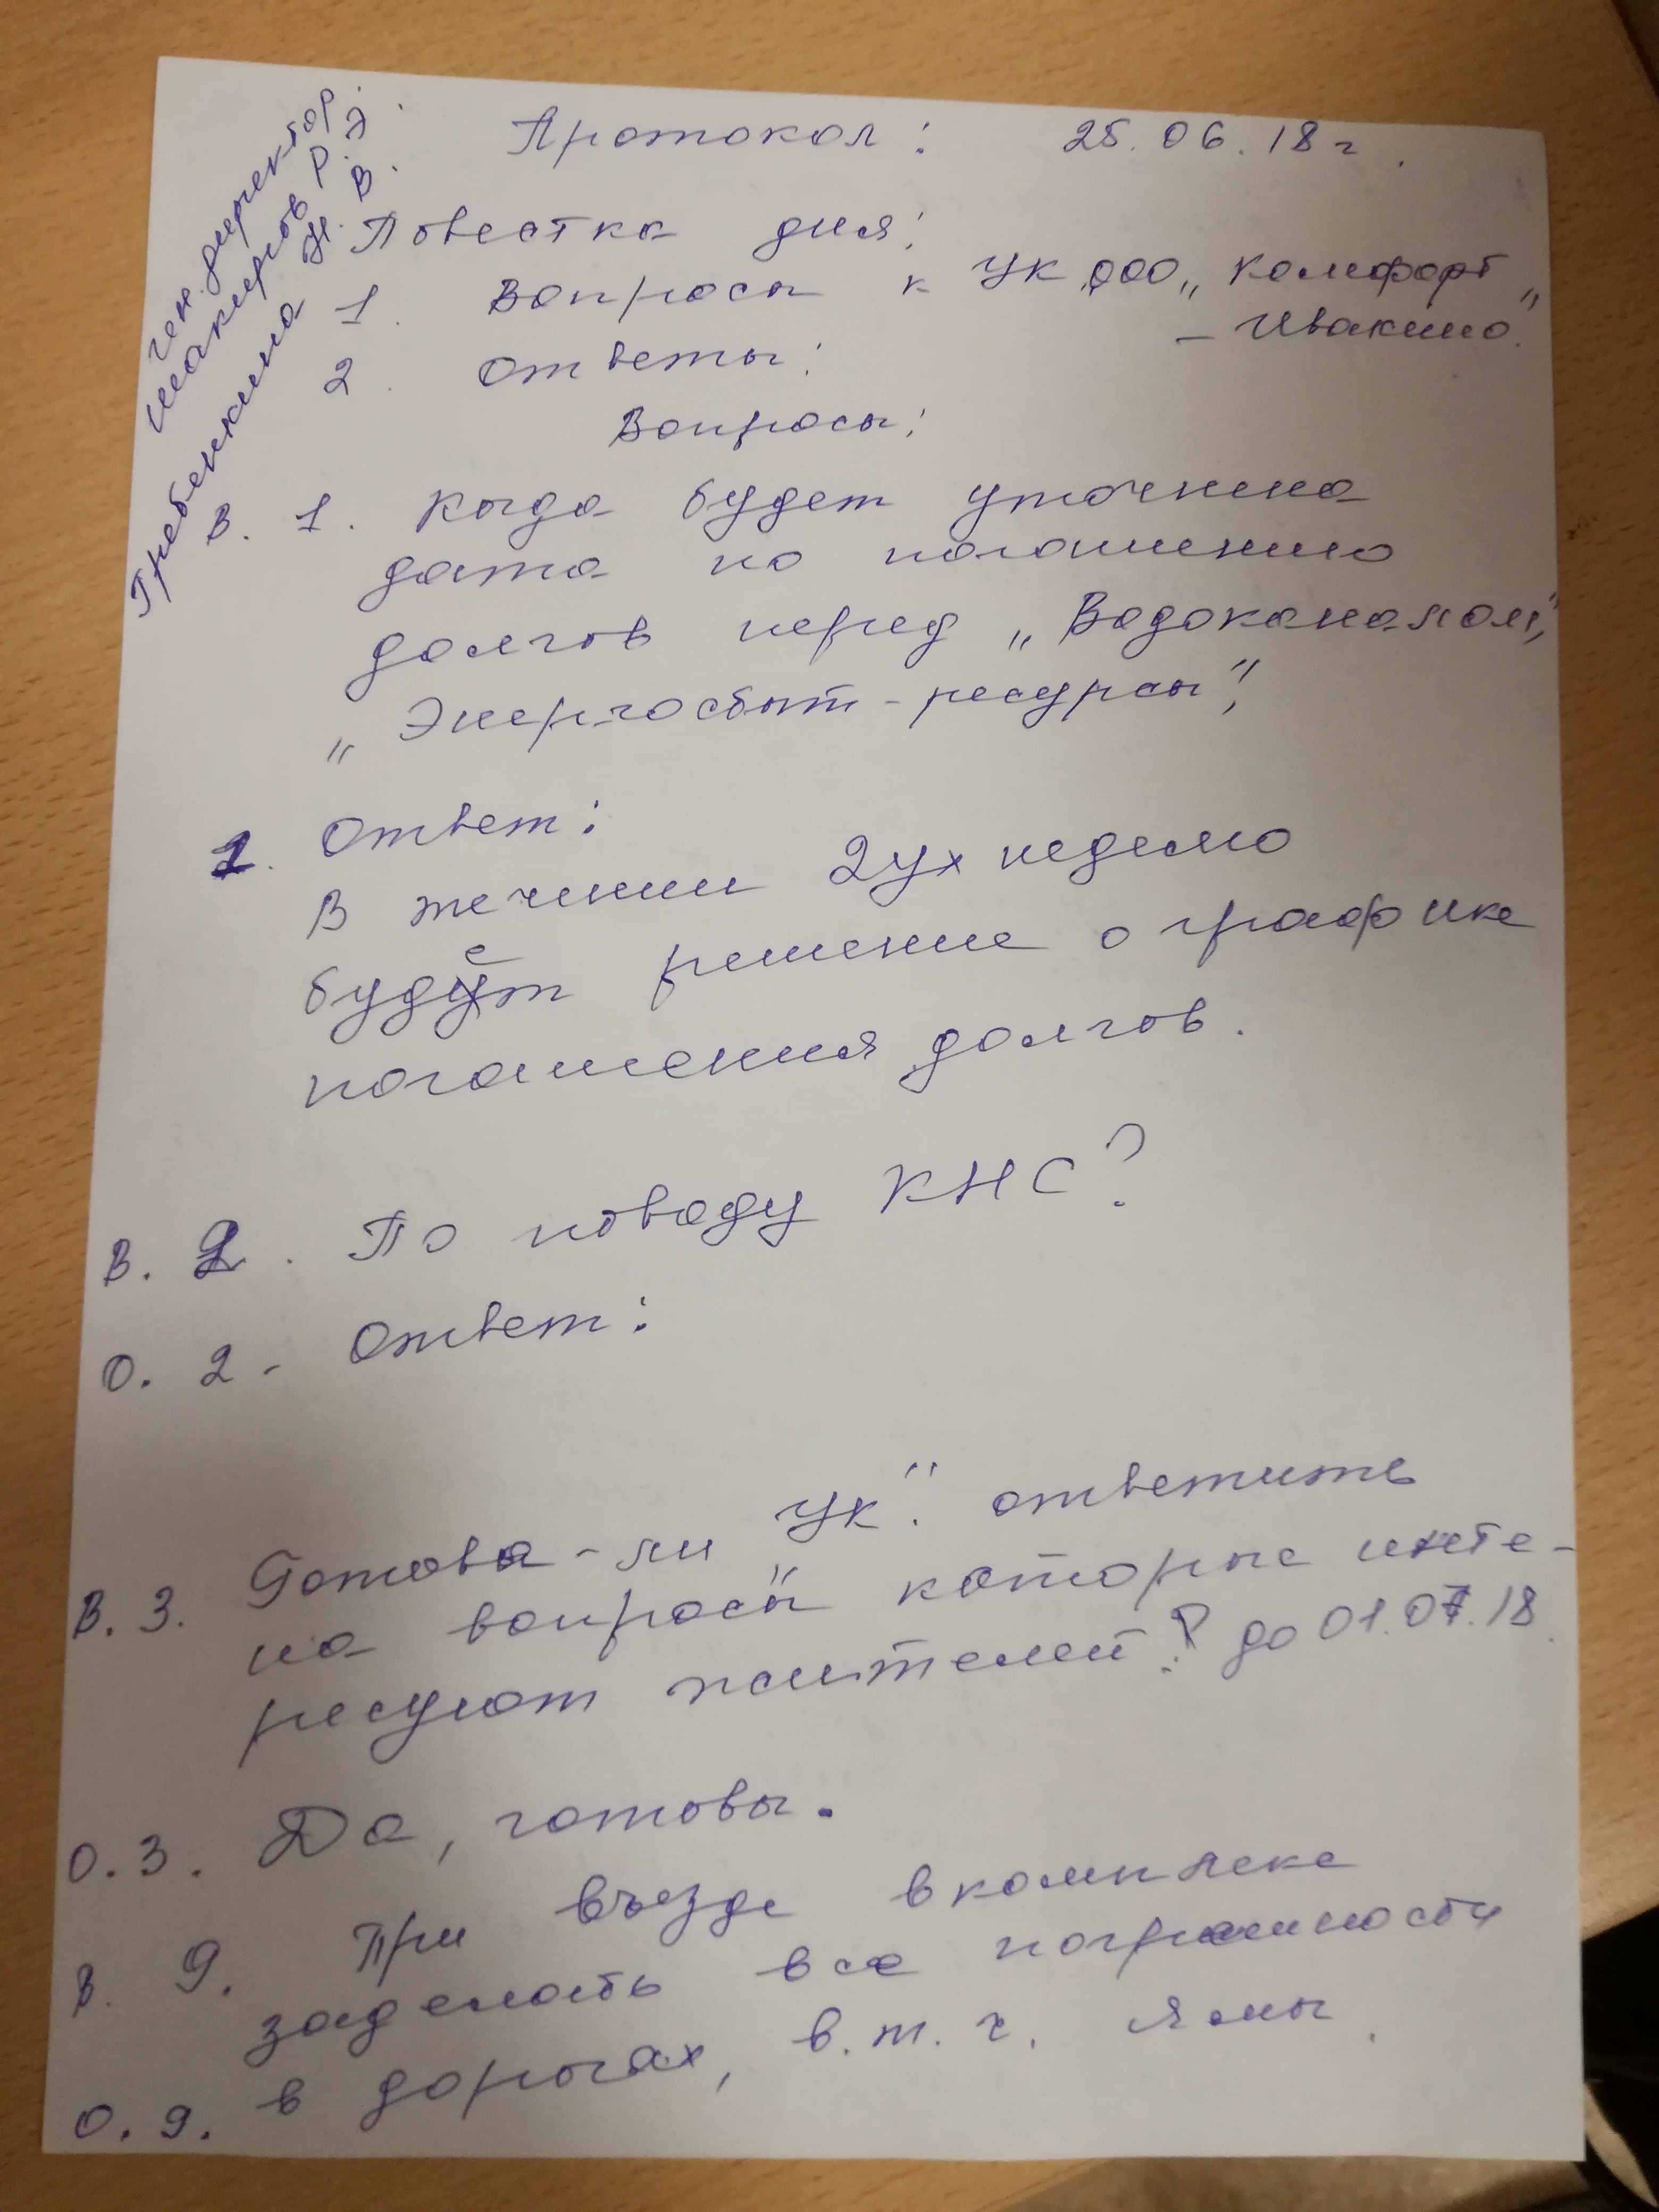 Протокол: 25.06.18 г.
ген. директор.
Шакиров Р. Э.
Гребенкина Н. В.
Повестка дня:
1. Вопросы к УК ООО „Комфорт„
- Ивакино.
2. Ответы:
Вопросы:
В. 1. Когда будет уточнена
дата по погашению
долгов перед „Водоканалом",
„Энергосбыт-ресурсы",
1. Ответ:
В течении 2ух неделю
будет решение о графике
погашения долгов.
В. 2. По поводу КНС?
О. 2 - Ответ:
В. 3. Готова-ли УК". ответить
на вопросы" которые инте-
ресуют жителей? до 01.07.18.
О. 3. Да, готовы.
В. 9. При въезде в комплекс
заделать все погрешности
О. 9. в дорогах, в.т.ч. ямы.